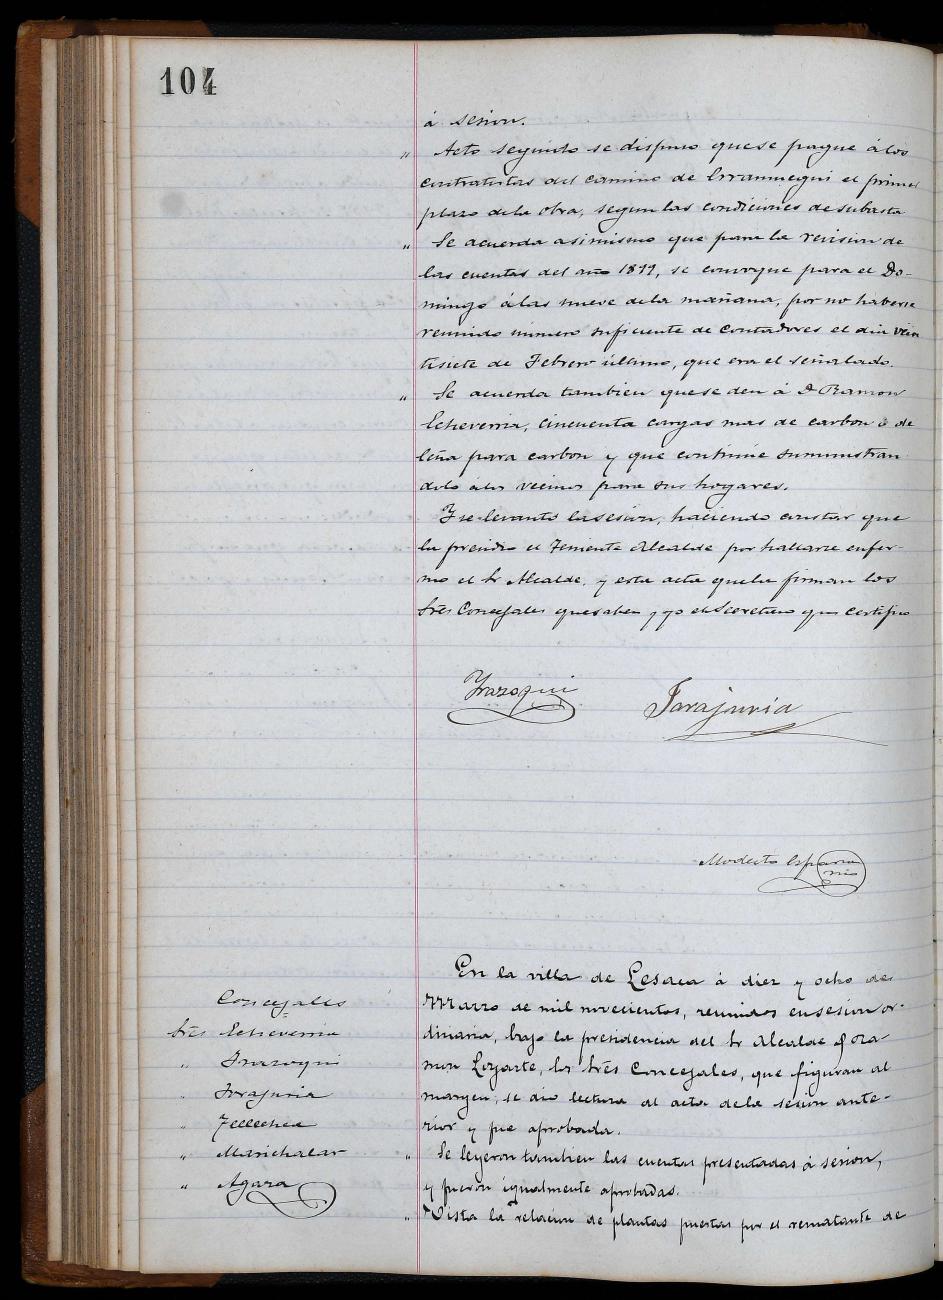 104
á sesion.
" Acto seguido se dispuso que se pague á los
contratistas del camino de Irrannegui el primer
plazo de la obra, segun las condiciones de subasta
" Se acuerda asimismo que para la revision de
las cuentas del año 1899, se convoque para el Do-
mingo á las nueve de la mañana, por no haberse
reunido número suficiente de contadores el dia vein
tisiete de Febrero último, que era el señalado.
" Se acuerda tambien que se den á D Ramon
Echeverria, cincuenta cargas mas de carbon ó de
leña para carbon y que continúe suministran
dolo á los vecinos para sus hogares.
Y se levantó la sesion, haciendo constar que
la presidió el Teniente Alcalde por hallarse enfer-
mo el Sr Alcalde, y esta acta que la firman los
Sres Concejales que saben y yo el Secretario que certifico
Irazoqui
Tarajuria
Modesto Esparza
En la villa de Lesaca á diez y ocho de
Marzo de mil novecientos, reunidos en sesion or-
dinaria, bajo la presidencia del Sr Alcalde D Ra-
mon Loyarte, los Sres Concejales, que figuran al
margen, se dió lectura al acta de la sesion ante-
rior y fue aprobada.
" Se leyeron tambien las cuentas presentadas á sesion,
y fueron igualmente aprobadas.
" Vista la relacion de plantas puestas por el rematante de
Concejales
Sres Echeverria
" Irazoqui
" Tarajuria
" Tellechea
" Marichalar
" Agara